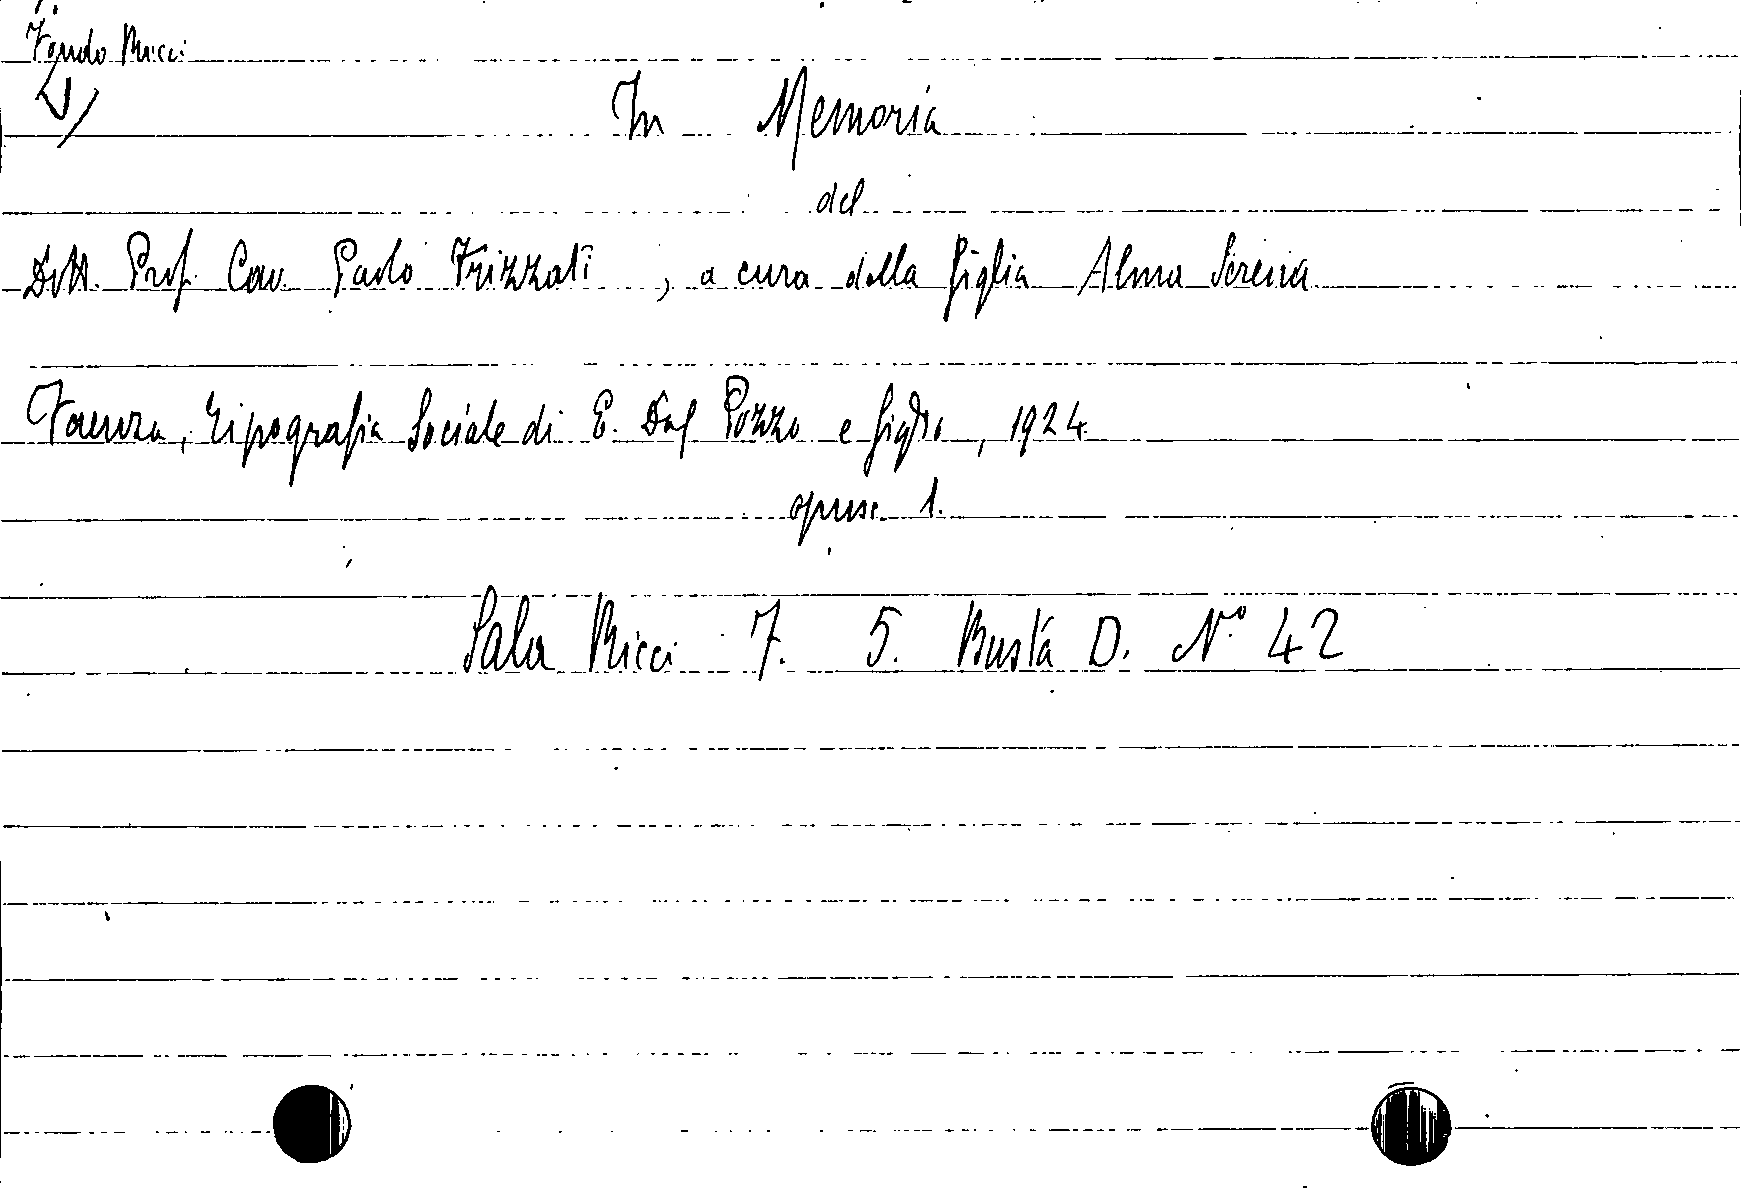 Fondo Ricci
In Memoria
del
Dott. Prof. Cav. Paolo Frizzati, a cura della figlia Alma Serena
Faenza, Tipografia Sociale di E. Dal Pozzo e figlio, 1924
opusc. 1.
Sala Ricci 7. 5. Busta D. N° 42